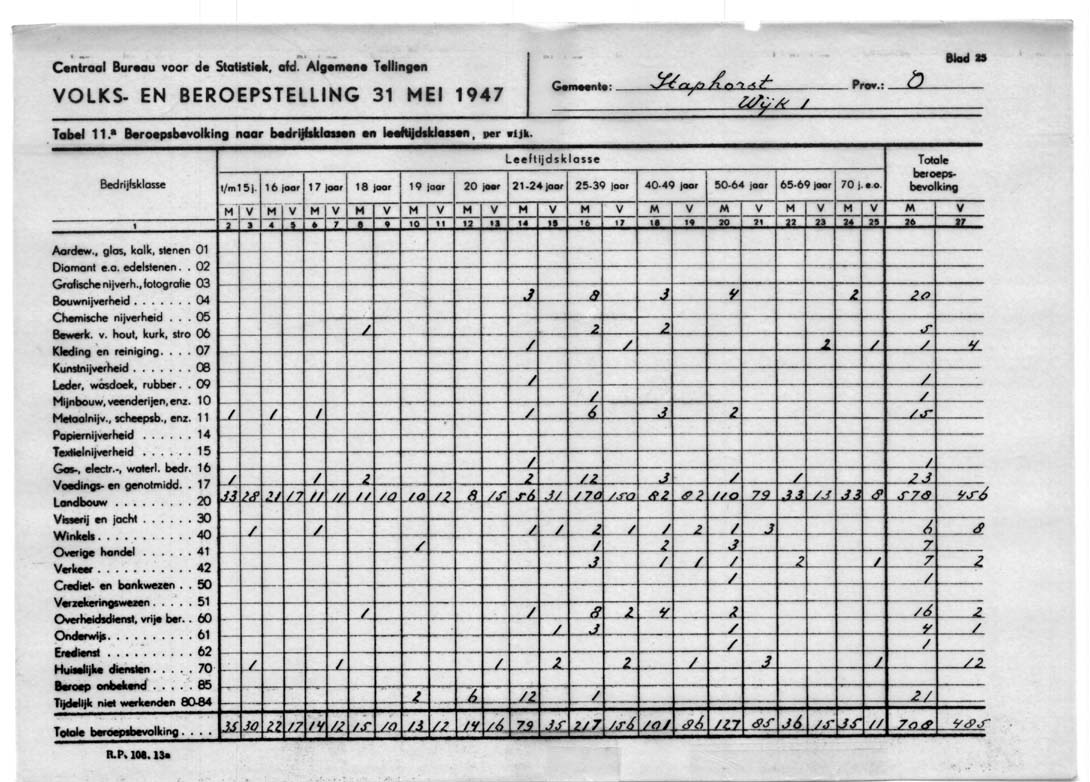 Blad 25
Centraal Bureau voor de Statistiek, afd. Algemene Tellingen
VOLKS- EN BEROEPSTELLING 31 MEI 1947
Gemeente: Staphorst Prov.: O
Wijk 1
Tabel 11.ª Beroepsbevolking naar bedrijfsklassen en leeftijdsklassen, per wijk.
Bedrijfsklasse Leeftijdsklasse Totale beroeps-bevolking
t/m 15 j. 16 jaar 17 jaar 18 jaar 19 jaar 20 jaar 21-24 jaar 25-39 jaar 40-49 jaar 50-64 jaar 65-69 jaar 70 j. e.o.
M V M V M V M V M V M V M V M V M V M V M V M V M V
1 2 3 4 5 6 7 8 9 10 11 12 13 14 15 16 17 18 19 20 21 22 23 24 25 26 27
Aardew., glas, kalk, stenen 01
Diamant e.a. edelstenen. . 02
Grafische nijverh., fotografie 03
Bouwnijverheid . . . . . . . 04 3 8 3 4 2 20
Chemische nijverheid . . . 05
Bewerk. v. hout, kurk, stro 06 1 2 2 5
Kleding en reiniging. . . . 07 1 1 2 1 1 4
Kunstnijverheid . . . . . . 08
Leder, wasdoek, rubber. . 09 1 1
Mijnbouw, veenderijen, enz. 10 1 1
Metaalnijv., scheepsb., enz. 11 1 1 1 1 6 3 2 15
Papiernijverheid . . . . . . 14
Textielnijverheid . . . . . . 15
Gas-, electr.-, waterl. bedr. 16 1 1
Voedings- en genotmidd. . 17 1 1 2 2 12 3 1 1 23
Landbouw . . . . . . . . . 20 33 28 21 17 11 11 11 10 10 12 8 15 56 31 170 150 82 82 110 79 33 13 33 8 578 456
Visserij en jacht . . . . . . 30
Winkels. . . . . . . . . . . 40 1 1 1 1 2 1 1 2 1 3 6 8
Overige handel . . . . . . 41 1 1 2 3 7
Verkeer . . . . . . . . . . . 42 3 1 1 1 2 1 7 2
Crediet- en bankwezen . . 50 1 1
Verzekeringswezen. . . . . 51
Overheidsdienst, vrije ber. . 60 1 1 8 2 4 2 16 2
Onderwijs. . . . . . . . . . 61 1 3 1 4 1
Eredienst . . . . . . . . . 62 1 1
Huiselijke diensten . . . . . 70 1 1 1 2 2 1 3 1 12
Beroep onbekend . . . . . 85
Tijdelijk niet werkenden 80-84 2 6 12 1 21
Totale beroepsbevolking . . . . 35 30 22 17 14 12 15 10 13 12 14 16 79 35 217 156 101 86 127 85 36 15 35 11 708 485
R.P. 108. 13a